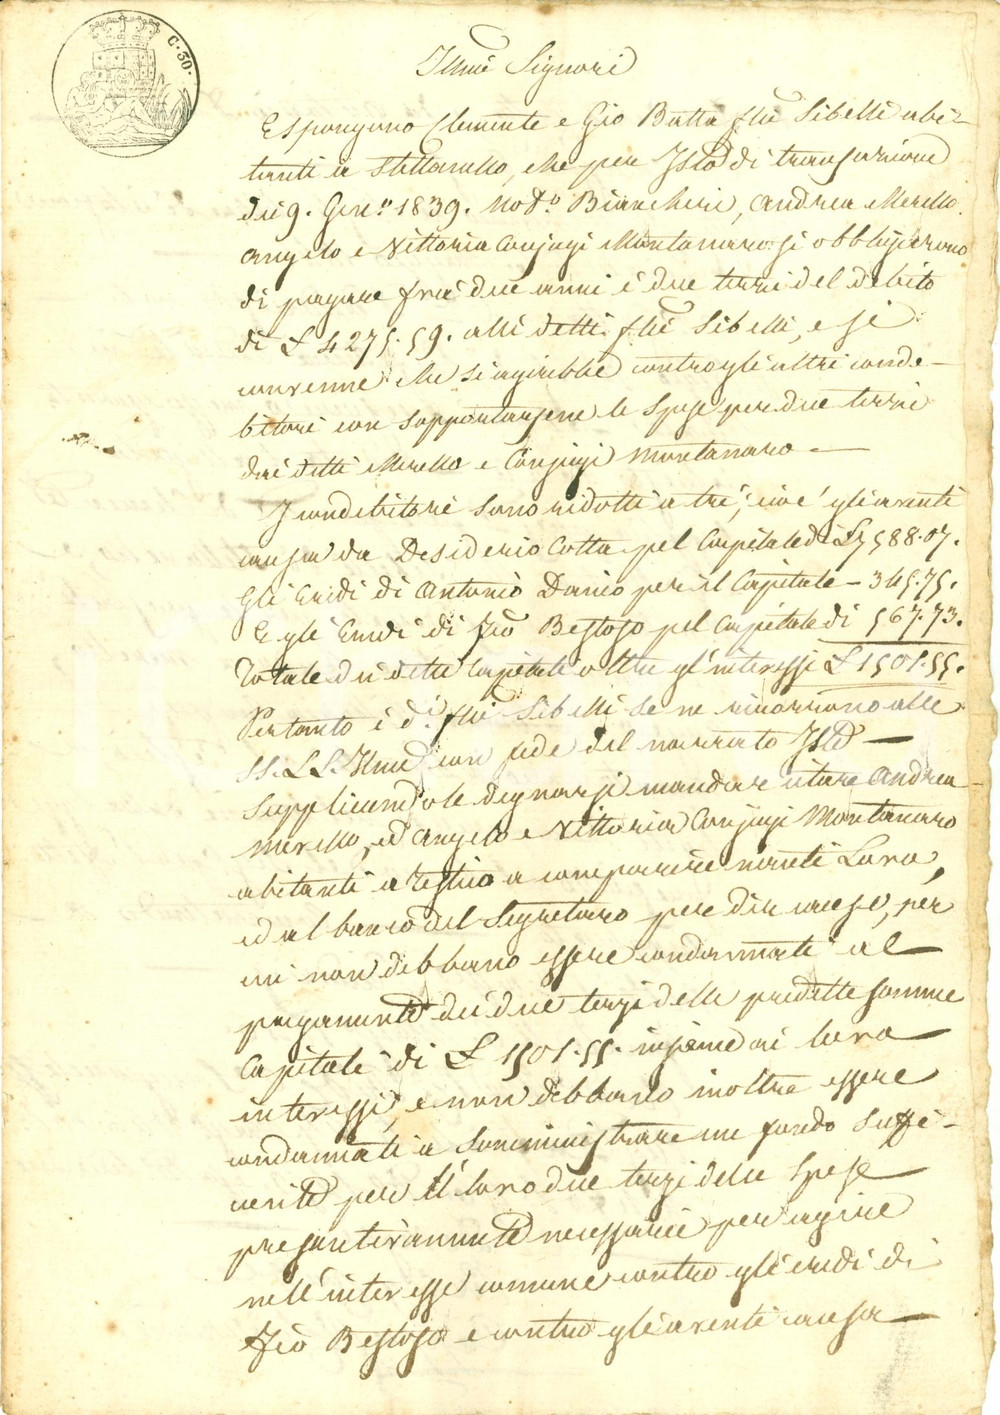 C. 30.
Illmi Signori
Espongono Clemente e Gio Batta flli Sibelli abi-
tanti a Stellanello, che per Isto di transazione
dei 9. Genn.° 1839. Not.° Biancheri, Andrea Merello,
Angelo e Vittoria Conjugi Montanaro si obbligarono
di pagare frà due anni i due terzi del debito
di £ 4275.59. alli detti flli Sibelli, e si
convenne che si agirebbe contro gli altri conde-
bitori con sopportarsene le spese per due terzi
dai detti Merello e Conjugi Montanaro —
I condebitori sono ridotti a tré, cioé gli aventi
causa da Desiderio Cotta pel Capitale di £ 588.07.
Gli Eredi di Antonio Danio per il Capitale — 345.75.
E gli Eredi di Gio Bestoso pel Capitale di 567.73.
Totale dei detti Capitali oltre gl'interessi £ 1501.55.
Pertanto i d.i flli Sibelli se ne ricorrono alle
SS. LL. Illme con fede del narrato Isto —
Supplicandole degnarsi mandar citare Andrea
Merello, ed Angelo e Vittoria Conjugi Montanaro
abitanti a Testico a comparire nanti Loro,
ed al banco del Segretaro per dir cause, per
cui non debbano essere condannati al
pagamento dei due terzi delle predette somme
Capitali di £ 1501.55. insieme ai loro
interessi, e non debbano inoltre essere
condannati a somministrare un fondo suffi-
ciente per li loro due terzi delle spese
presuntivamente necessarie per agire
nell'interesse comune contro gli eredi di
Gio Bestoso e contro gli aventi causa —